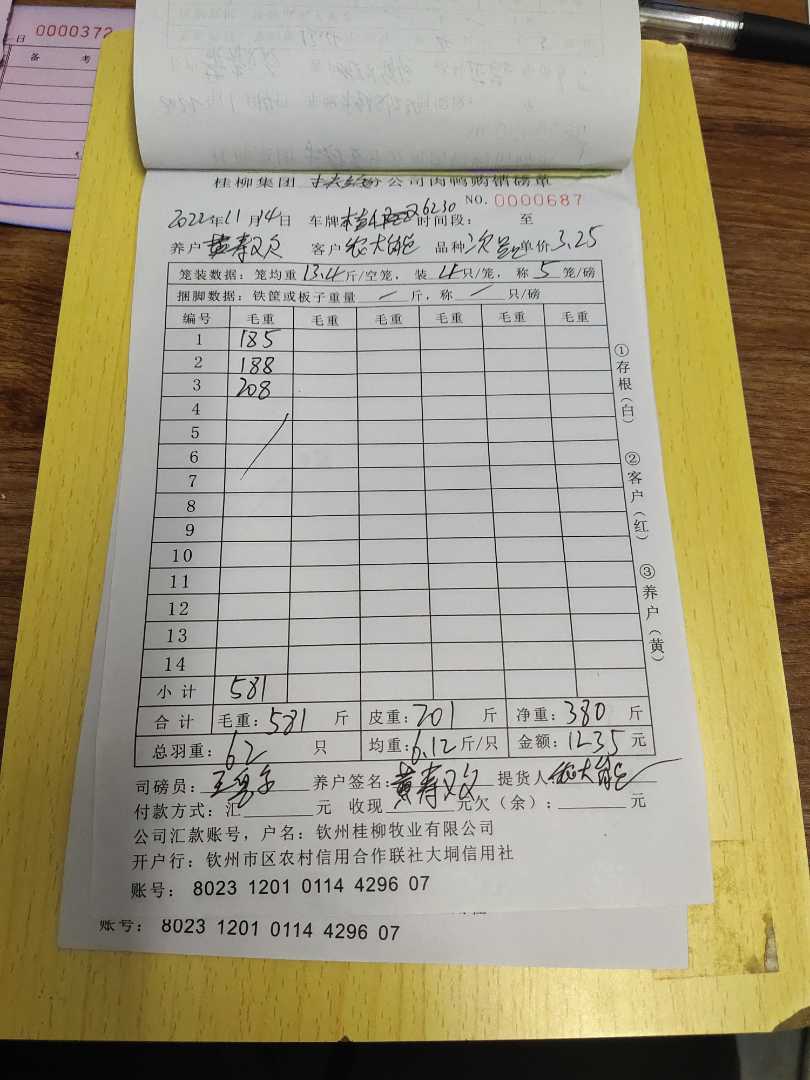 日 0000372
备 考
桂柳集团 分公司肉鸭购销磅单
NO. 0000687
2022年11月14日 车牌 6230 时间段： 至
养户 黄寿 客户 农大 品种 次 单价 3.25
笼装数据：笼均重 13.4 斤/空笼，装 4 只/笼，称 5 笼/磅
捆脚数据：铁筐或板子重量 / 斤，称 / 只/磅
编号 毛重 毛重 毛重 毛重 毛重 毛重
1 185
2 188
3 208
4
5
6
7
8
9
10
11
12
13
14
小计 581
合计 毛重：581 斤 皮重：201 斤 净重：380 斤
总羽重：62 只 均重：6.12 斤/只 金额：1235 元
司磅员： 养户签名：黄寿 提货人 农大
付款方式：汇 元 收现 元欠（余）： 元
公司汇款账号，户名：钦州桂柳牧业有限公司
开户行：钦州市区农村信用合作联社大垌信用社
账号： 8023 1201 0114 4296 07
账号： 8023 1201 0114 4296 07
①存根（白）
②客户（红）
③养户（黄）